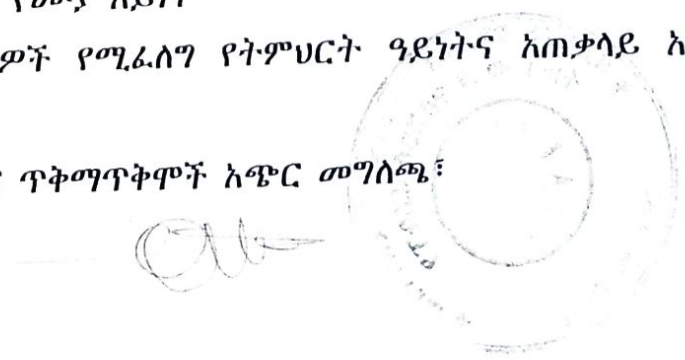 ዎች የሚፈለግ የትምህርት ዓይነትና አጠቃላይ አ
ጥቅማጥቅሞች አጭር መግለጫ፣